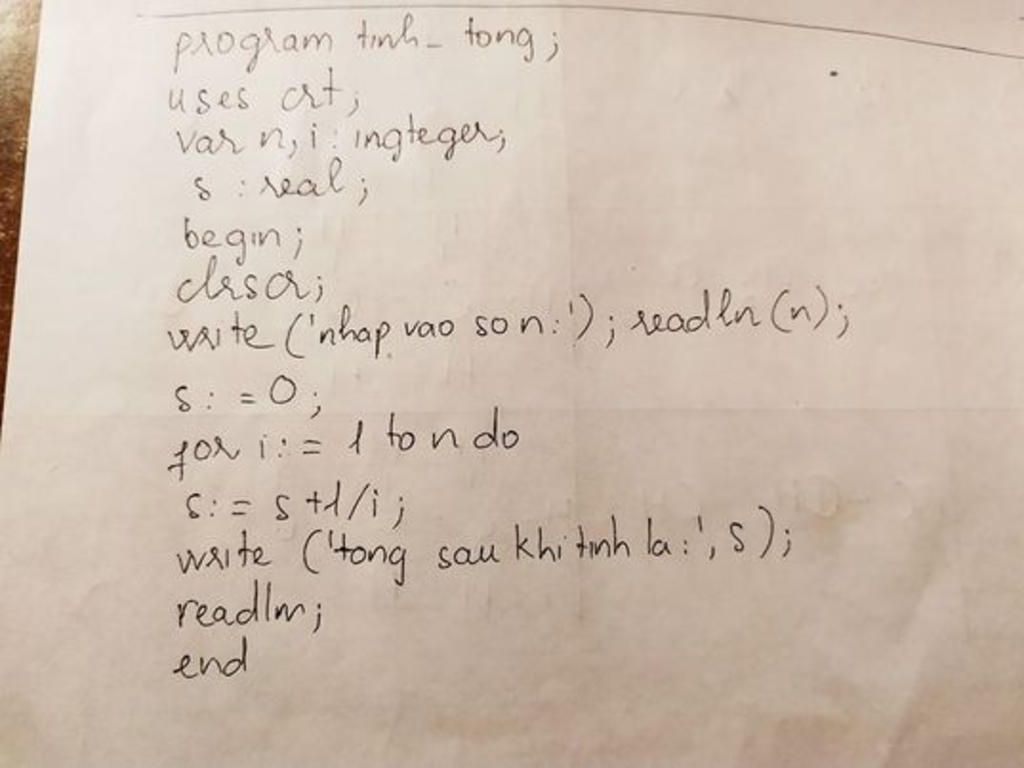 program tinh_ tong;
uses crt;
var n, i : ingteger;
s : real;
begin;
clrscr;
write ('nhap vao so n:'); readln (n);
s: = 0;
for i: = 1 to n do
s: = s +1/i;
write ('tong sau khi tinh la:', s);
readln;
end